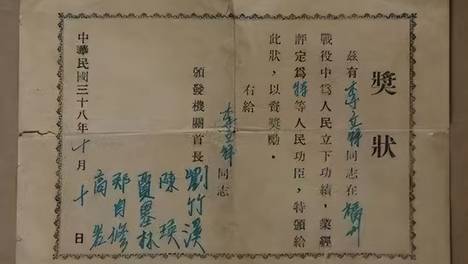 獎狀
茲有李立同志在
戰役中爲人民立下功績,業經
評定爲特等人民功臣,特頒給
此狀,以資獎勵.
右給
李立同志
頒發機關首長
劉竹溪
陳瑛
賈墨林
鄭自修
高岩
中華民國三十八年十月十日